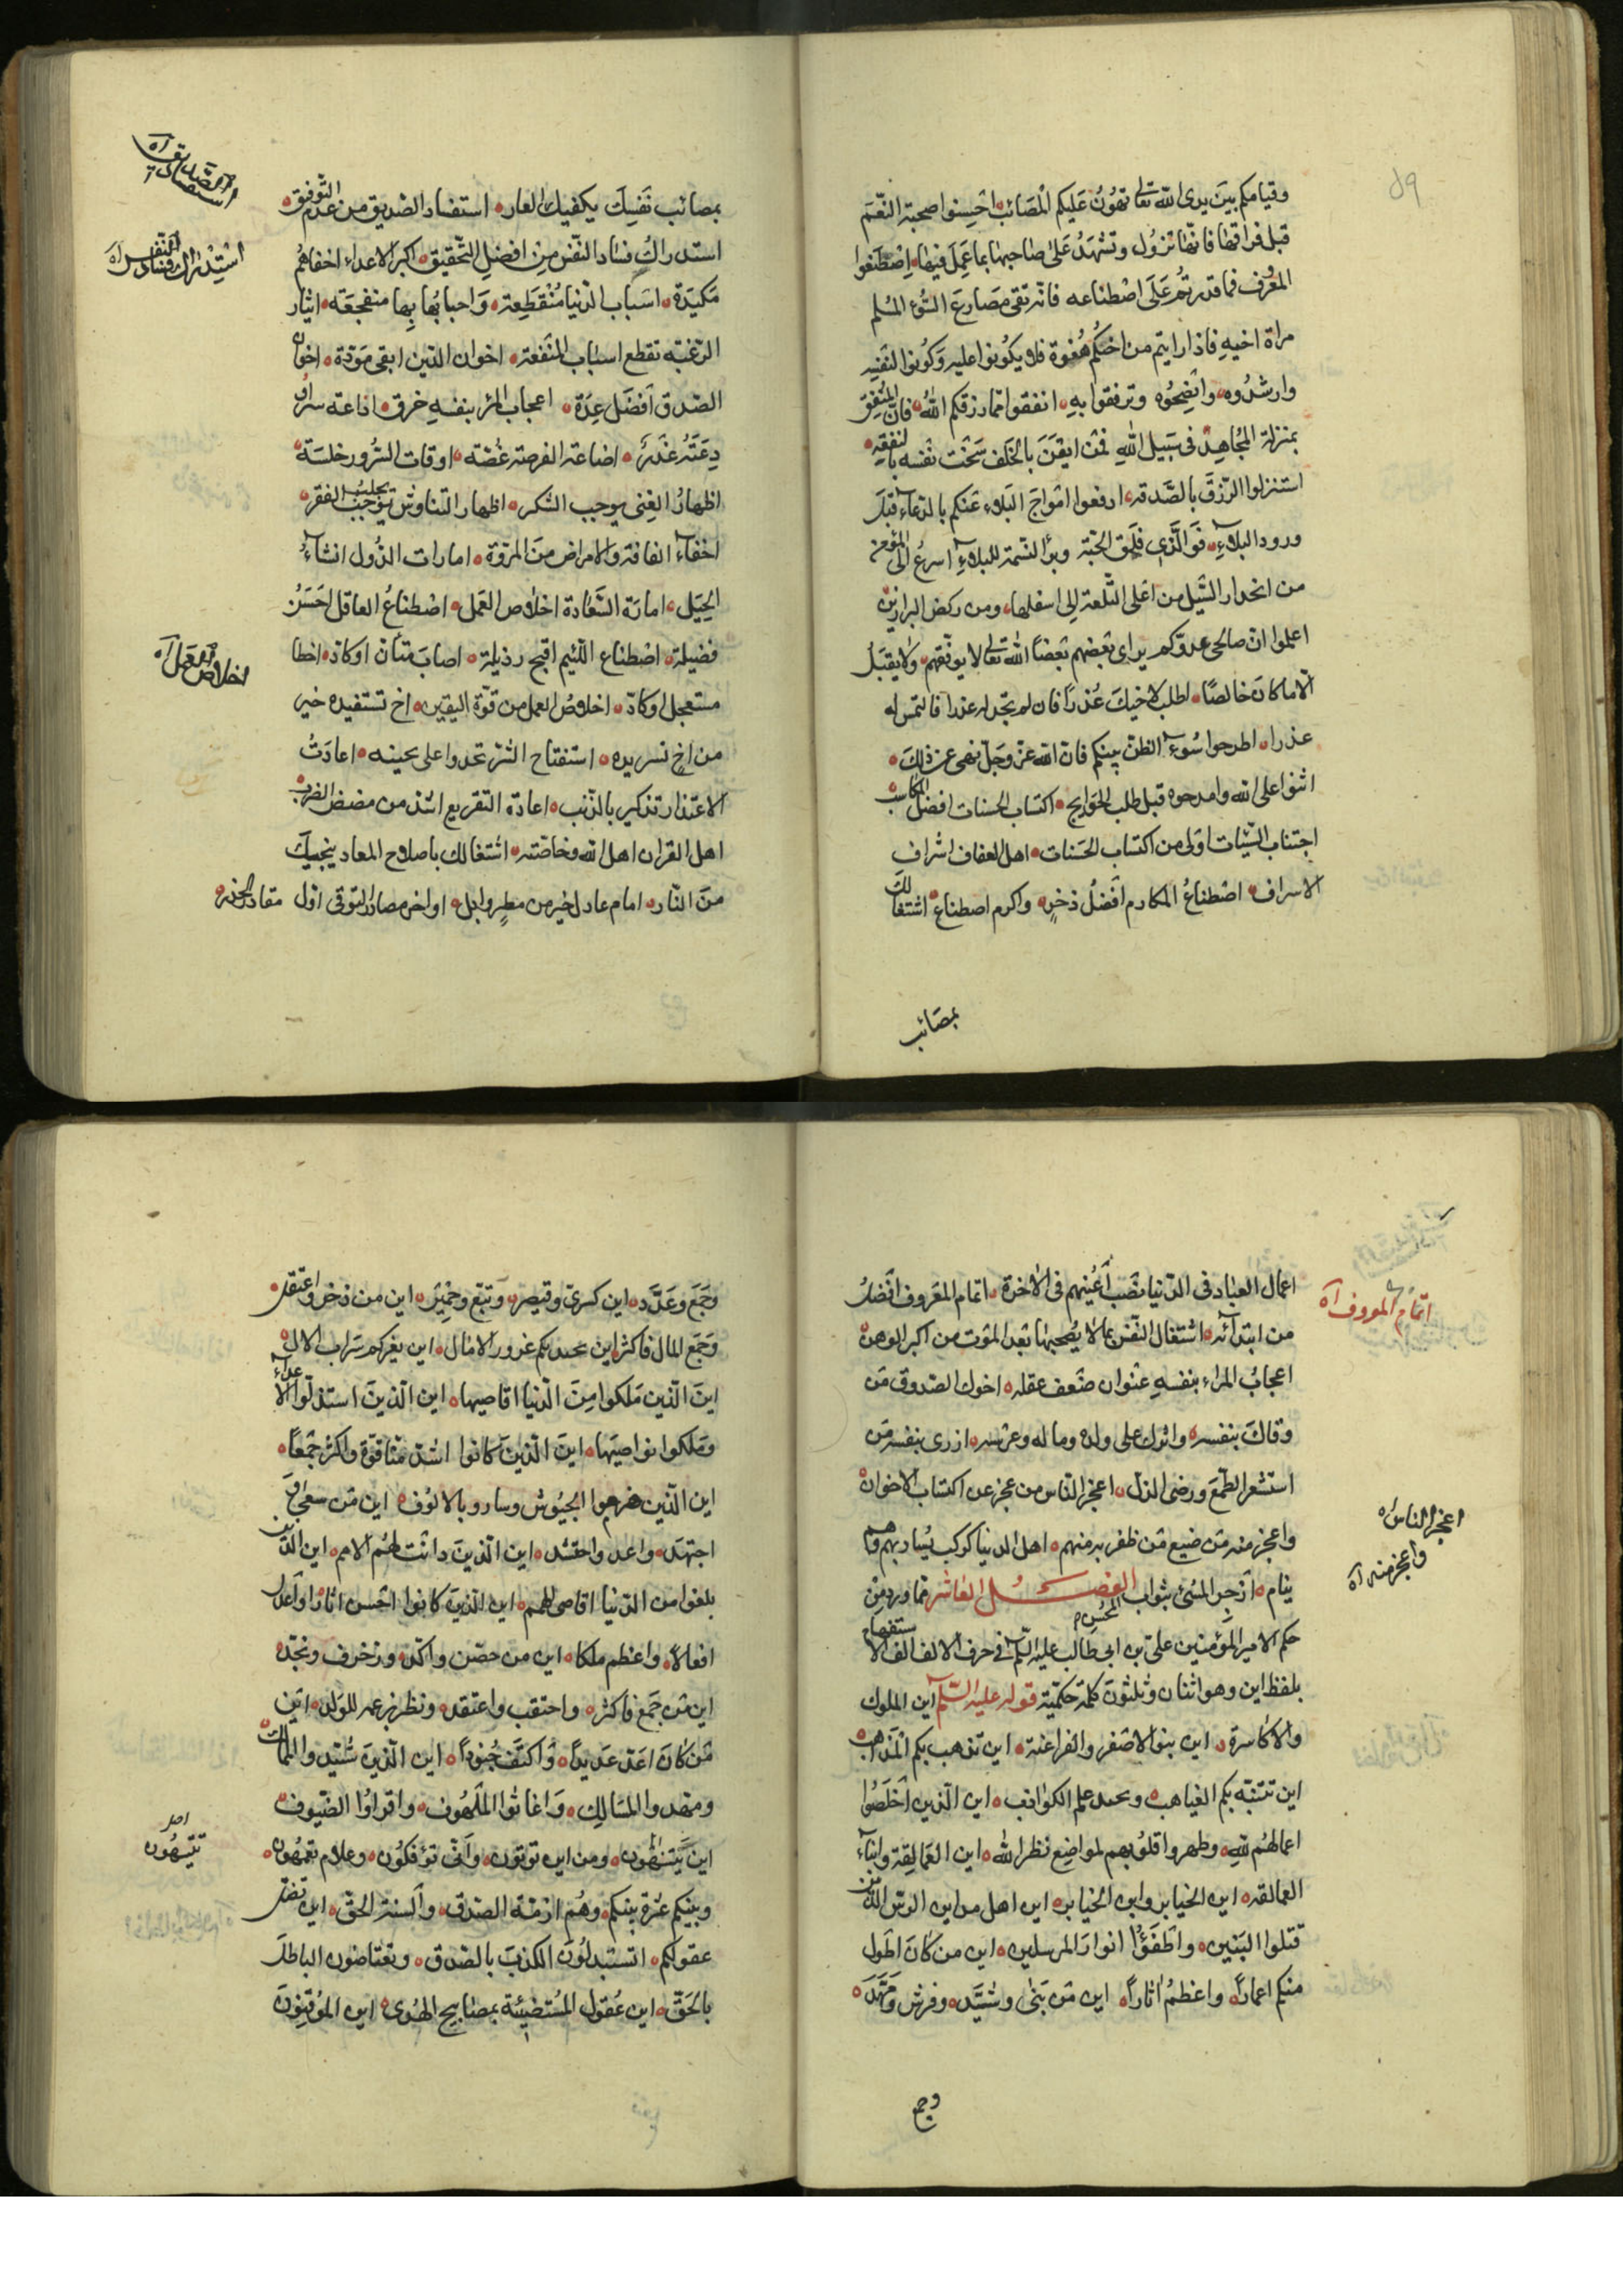 وقيامكم بين يدى الله تعالى تهون عليكم المصائب احسنوا صحبة النعم
قبل فراقها فانها تزول وتشهد على صاحبها بما عمل فيها اصطنعوا
المعروف فما قدرتم على اصطناعه فانه تقى مصارع السوء المسلم
مراة اخيه فاذا رايتم من اخيكم هفوة فلا يكونوا عليه وكونوا لنفسه
وارشدوه وانصحوه وترفقوا به انفقوا مما رزقكم الله فان المنفق
بمنزلة المجاهد فى سبيل الله فمن ايقن بالخلف سخت نفسه بالنفقة
استنزلوا الرزق بالصدقة ادفعوا امواج البلاء عنكم بالدعاء قبل
ورود البلاء فوالذى فلق الحبة وبرأ النسمة للبلاء اسرع الى المؤمن
من انحدار السيل من اعلى التلعة الى اسفلها ومن ركض البراذين
اعلموا ان صالحى عدوكم يراى بعضهم بعضا الله تعالى لا يوفقهم ولا يقبل
الا ما كان خالصا اطلب لاخيك عذرا فان لم تجد له عذرا فالتمس له
عذرا اطرحوا سوء الظن بينكم فان الله عز وجل نهى عن ذلك
اثنوا على الله وامدحوه قبل طلب الحوايج اكتساب الحسنات افضل المكاسب
اجتناب السيئات اولى من اكتساب الحسنات اهل العفاف اشراف
الاسراف اصطناع المكارم افضل ذخر واكرم اصطناع اشتغالك
بمصائب
استفساد الصديق اه
استدراك فساد النفس اه
اخلاص العمل اه
بمصائب نفسك يكفيك العار استفساد الصديق من عدم التوفيق
استدراك فساد النفس من افضل التحقيق اكبر الاعداء اخفاهم
مكيدة اسباب الدنيا منقطعة واحبابها بها منفجعة ايثار
الرغبة تقطع اسباب المنفعة اخوان الدين ابقى مودة اخوان
الصدق افضل عدة اعجاب المرء بنفسه خرق اذاعة سر
دعته غدر اضاعة الفرصة غصة اوقات السرور خلسة
اظهار الغنى يوجب الشكر اظهار التناوش يوجب يجلب الفقر
اخفاء الفاقة والامراض من المروة امارات الدول انشاء
الحيل امارة السعادة اخلاص العمل اصطناع العاقل احسن
فضيلة اصطناع اللئيم اقبح رذيلة اصاب متأن او كاد اخطا
مستعجل او كاد اخلاص العمل من قوة اليقين اخ تستفيده خير
من اخ تستزيده استفتاح الشر تحدوا على بحينه اعادت
الاعتذار تذكير بالذنب اعادة التقريع اشد من مضض الضرب
اهل القران اهل الله وخاصته اشتغالك باصلاح المعاد ينجيك
من النار امام عادل خير من مطر وابل اواخر مصادر التوقى اول مقادر الحذر
اتمام المعروف اه
اعجز الناس اه
واعجز منه اه
اعمال العباد فى الدنيا نصب اعينهم فى الاخرة اتمام المعروف افضل
من ابتدائه اشتغال النفس بما لا يصحبها بعد الموت من اكبر الوهن
اعجاب المراء بنفسه عنوان ضعف عقله اخوك الصدوق من
وقاك بنفسه واثرك على ولده وماله وعرسه ازرى بنفسه من
استشعر الطمع ورضى الذل اعجز الناس من عجز عن اكتساب الاخوان
واعجز منه من ضيع من ظفر به منهم اهل الدنيا كركب يسار بهم وهم
ينام ازجر المسئ بثواب المحسن الفصل العاشر مما ورد من
حكم الامير المؤمنين على بن ابى طالب عليه السلام فى حرف الالف الف الاستفهام
بلفظ اين وهو اثنان وثلثون كلمة حكمية قوله عليه السلام اين الملوك
والاكاسرة اين بنو الاصفر والفراعنة اين تذهب بكم المذاهب
اين تتيه بكم الغياهب وبحد علم الكواذب اين الذين اخلصوا
اعمالهم لله وطهروا قلوبهم لمواضع نظر الله اين العمالقة وابناء
العمالقه اين الجبابر وابن الجبابر اين اهل مداين الرس الذين
قتلوا النبين واطفؤا انوار المرسلين اين من كان اطول
منكم اعمارا واعظم اثارا اين من بنى وشيد وفرش ومهد
وجمع
وجمع وعدد اين كسرى وقيصر وتبع وحمير اين من ذخر واعتقل
وجمع المال فاكثر اين بحد بكم غرور الامال اين يغركم سراب الال
اين الذين ملكوا من الدنيا اقاصيها اين الذين استذلوا الاعداء
وملكوا نواصيها اين الذين كانوا اشد منا قوة واكثر جمعا
اين الذين هزموا الجيوش وسارو بالالوف اين من سعى و
اجتهد واعد واحتشد اين الذين دانت لهم الامم اين الذين
بلغوا من الدنيا اقاصى الهمم اين الذين كانوا احسن اثارا واعدل
افعالا واعظم ملكا اين من حصن واكد وزخرف ونجد
اين من جمع فاكثر واحتقب واعتقد ونظر بزعمه للولد اين
من كان اعد عديدا واكنف جنودا اين الذين شيدوا الممالك
ومهدوا المسالك واغاثوا الملهوف واقراوا الضيوف
اين تتيهون ومن اين توتون وانى توفكون وعلام تعمهون
تتيهون
وبينكم عترة بينكم وهم ازمة الصدق والسنة الحق اين تضل
عقولكم اتستبدلون الكذب بالصدق وتعتاضون الباطل
بالحق اين عقول المستضيئة بمصابيح الهدى اين الموقنون